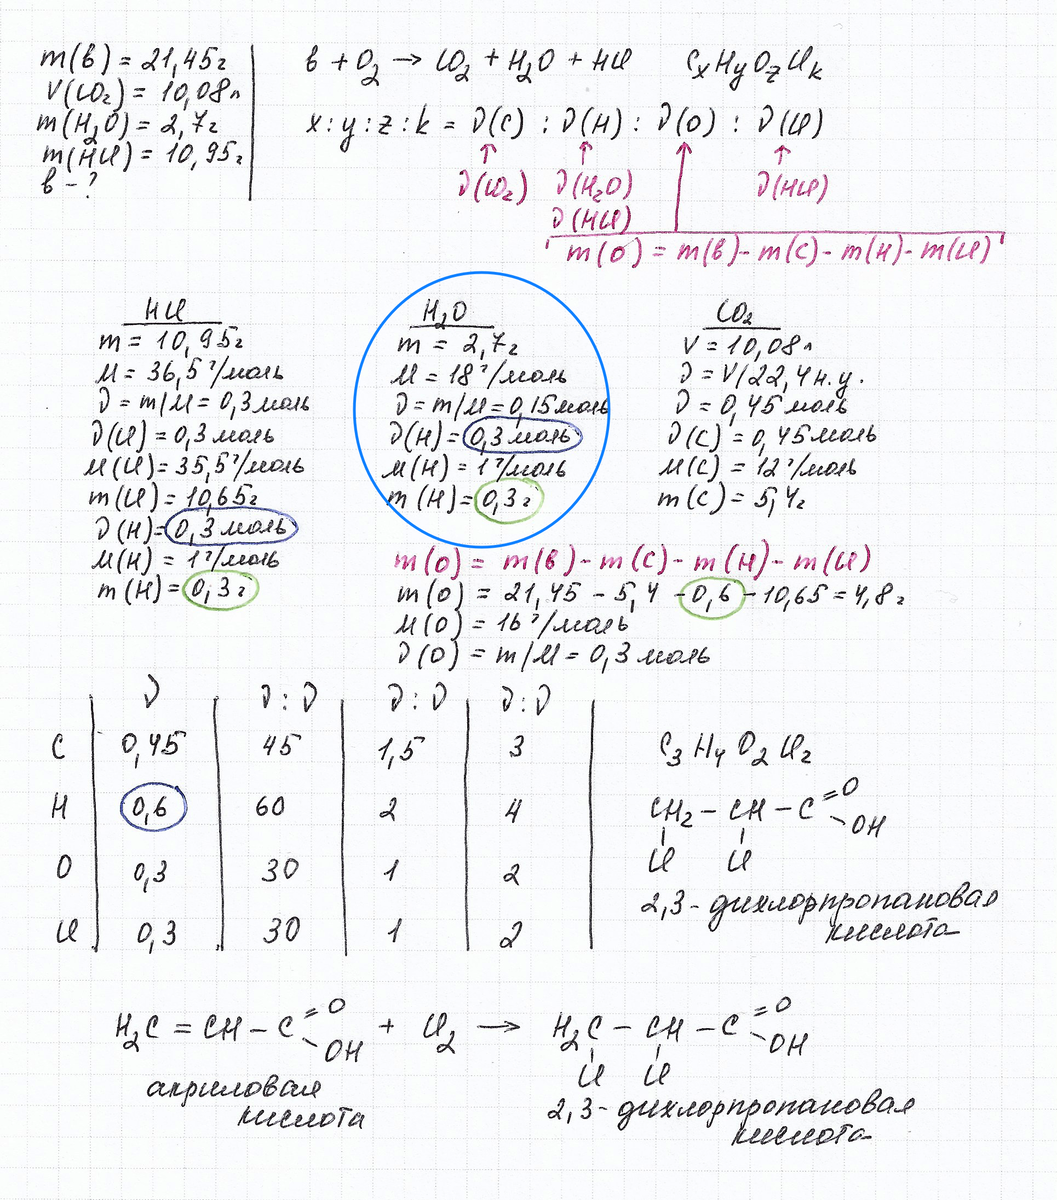 m(в) = 21,45г
V(CO₂) = 10,08л
m(H₂O) = 2,7г
m(HCl) = 10,95г
в - ?
в + O₂ → CO₂ + H₂O + HCl CₓHᵧO_zClₖ
x : y : z : k = ν(C) : ν(H) : ν(O) : ν(Cl)
↑ ↑ ↑
ν(CO₂) ν(H₂O) ν(HCl)
ν(HCl)
m(O) = m(в) - m(C) - m(H) - m(Cl)
HCl
m = 10,95г
M = 36,5 г/моль
ν = m/M = 0,3 моль
ν(Cl) = 0,3 моль
M(Cl) = 35,5 г/моль
m(Cl) = 10,65г
ν(H) = 0,3 моль
M(H) = 1 г/моль
m(H) = 0,3 г
H₂O
m = 2,7г
M = 18 г/моль
ν = m/M = 0,15 моль
ν(H) = 0,3 моль
M(H) = 1 г/моль
m(H) = 0,3 г
CO₂
V = 10,08л
ν = V/22,4 н.у.
ν = 0,45 моль
ν(C) = 0,45 моль
M(C) = 12 г/моль
m(C) = 5,4г
m(O) = m(в) - m(C) - m(H) - m(Cl)
m(O) = 21,45 - 5,4 - 0,6 - 10,65 = 4,8г
M(O) = 16 г/моль
ν(O) = m/M = 0,3 моль
ν ν : ν ν : ν ν : ν
C 0,45 45 1,5 3
H 0,6 60 2 4
O 0,3 30 1 2
Cl 0,3 30 1 2
C₃H₄O₂Cl₂
CH₂ - CH - C =O
-OH
Cl Cl
2,3 - дихлорпропановая
кислота
H₂C = CH - C =O -OH + Cl₂ → H₂C - CH - C =O -OH
Cl Cl
акриловая
кислота
2,3 - дихлорпропановая
кислота